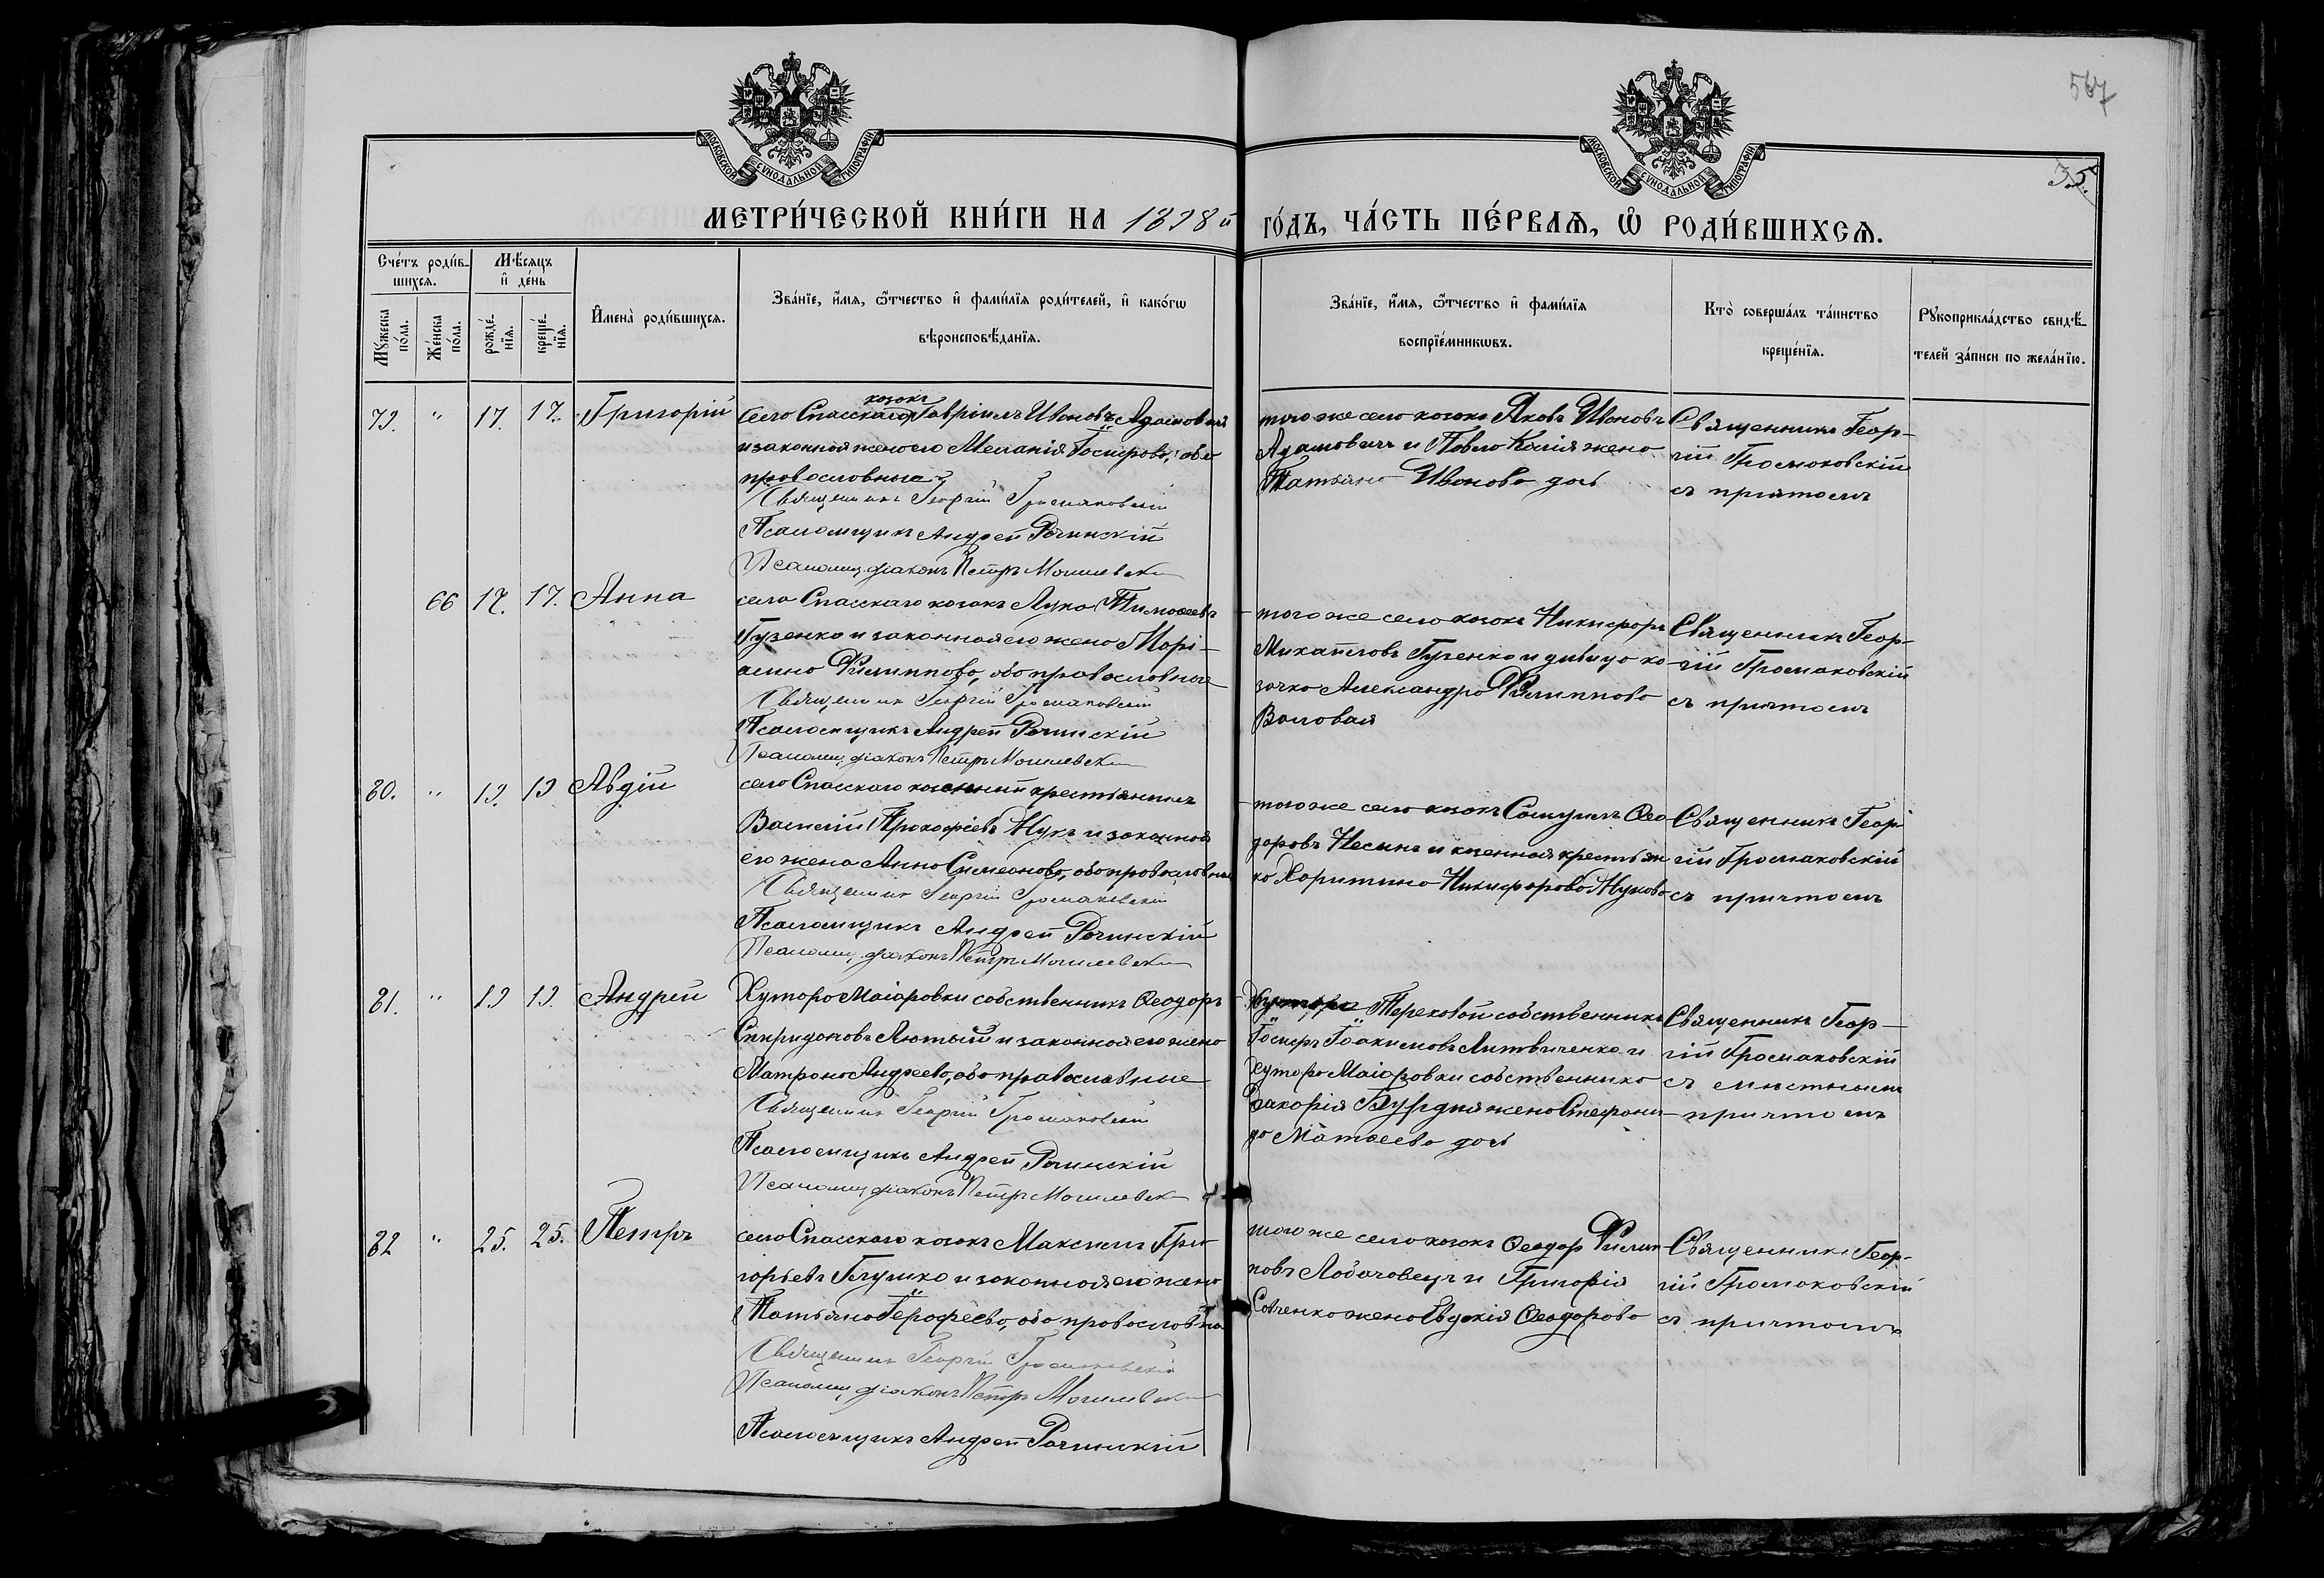 567
35.
МОСКОВСКОЙ СѴНОДАЛЬНОЙ ТИПОГРАФІИ
МОСКОВСКОЙ СѴНОДАЛЬНОЙ ТИПОГРАФІИ
МЕТРИ́ЧЕСКОЙ КНИ́ГИ НА 1898й ГО́ДЪ, ЧА́СТЬ ПЕ́РВАЯ, Ѡ҆ РОДИ́ВШИХСЯ.
Сче́тъ роди́в-
шихся.
Му́жеска по́ла.
Же́нска по́ла.
Мѣ́сяцъ
и҆ де́нь
рожде́-
нїя.
креще́-
нїя.
И҆мена̀ роди́вшихся.
Зва́нїе, и҆́мя, ѻ҆́тчество и҆ фами́лїя роди́телей, и҆ како́гѡ
вѣроисповѣ́данїя.
Зва́нїе, и҆́мя, ѻ҆́тчество и҆ фами́лїя
воспрїе́мникѡвъ.
Кто̀ соверша́лъ та́инство
креще́нїя.
Рꙋкоприкла́дство свидѣ́-
телей за́писи по жела́нїю.
79. " 17. 17. Григорій
козакъ
Села Спасскаго Гавріилъ Ивановъ Адамовичъ
и законная жена его Меланія Іосифова, оба
православные
Священникъ Георгій Громаковскій
Псаломщикъ Андрей Рачинскій
Псаломщ. діаконъ Петръ Могилевск
того же села козакъ Яковъ Ивановъ
Адамовичъ и Павла Калія жена
Татьяна Иванова дочь
Священникъ Геор-
гій Громаковскій
съ причтомъ
66 17. 17. Анна
села Спасскаго козакъ Лука Тимоѳеевъ
Гузенко и законная его жена Марі-
амна Филиппова, оба православные
Священникъ Георгій Громаковскій
Псаломщикъ Андрей Рачинскій
Псаломщ. діаконъ Петръ Могилевск
того же села козакъ Никифоръ
Михайловъ Гузенко и дивица ко-
зачка Александра Филиппова
Воловая
Священникъ Геор-
гій Громаковскій
съ причтомъ
80. " 19. 19 Авдій
села Спасскаго казенный крестьянинъ
Василій Прокофіевъ Жукъ и законная
его жена Анна Симеонова, оба православные
Священникъ Георгій Громаковскій
Псаломщикъ Андрей Рачинскій
Псаломщ. діаконъ Петръ Могилевск
того же села козакъ Самуилъ Ѳео-
доровъ Несинъ и казенная крестьян
ка Харитина Никифорова Жукова
Священникъ Геор-
гій Громаковскій
съ причтомъ
81. " 19 19. Андрей
Хутора Маіоровки собственникъ Ѳеодоръ
Спиридоновъ Лютый и законная его жена
Матрона Андреева, оба православные
Священникъ Георгій Громаковскій
Псаломщикъ Андрей Рачинскій
Псаломщ діаконъ Петръ Могилевск
Хутора Тереховой собственникъ
Іосифъ Іоакимовъ Литвиченко и
хутора Маіоровки собственника
Захарія жена Стефани-
да Матѳеева дочь
Священникъ Геор-
гій Громаковскій
съ мистнымъ
причтомъ
82 " 25. 25. Петръ
села Спасскаго козакъ Максимъ Гри-
горьевъ Глушко и законная его жена
Татьяна Іерофеева, оба православны
Священникъ Георгій Громаковскій
Псаломщ. діаконъ Петръ Могилевск
Псаломщикъ Андрей Рачинскій
того же села козакъ Ѳеодор Филип-
повъ и Григорія
Савченко жена Евдокія Ѳеодорова
Священникъ Геор-
гій Громаковскій
съ причтомъ